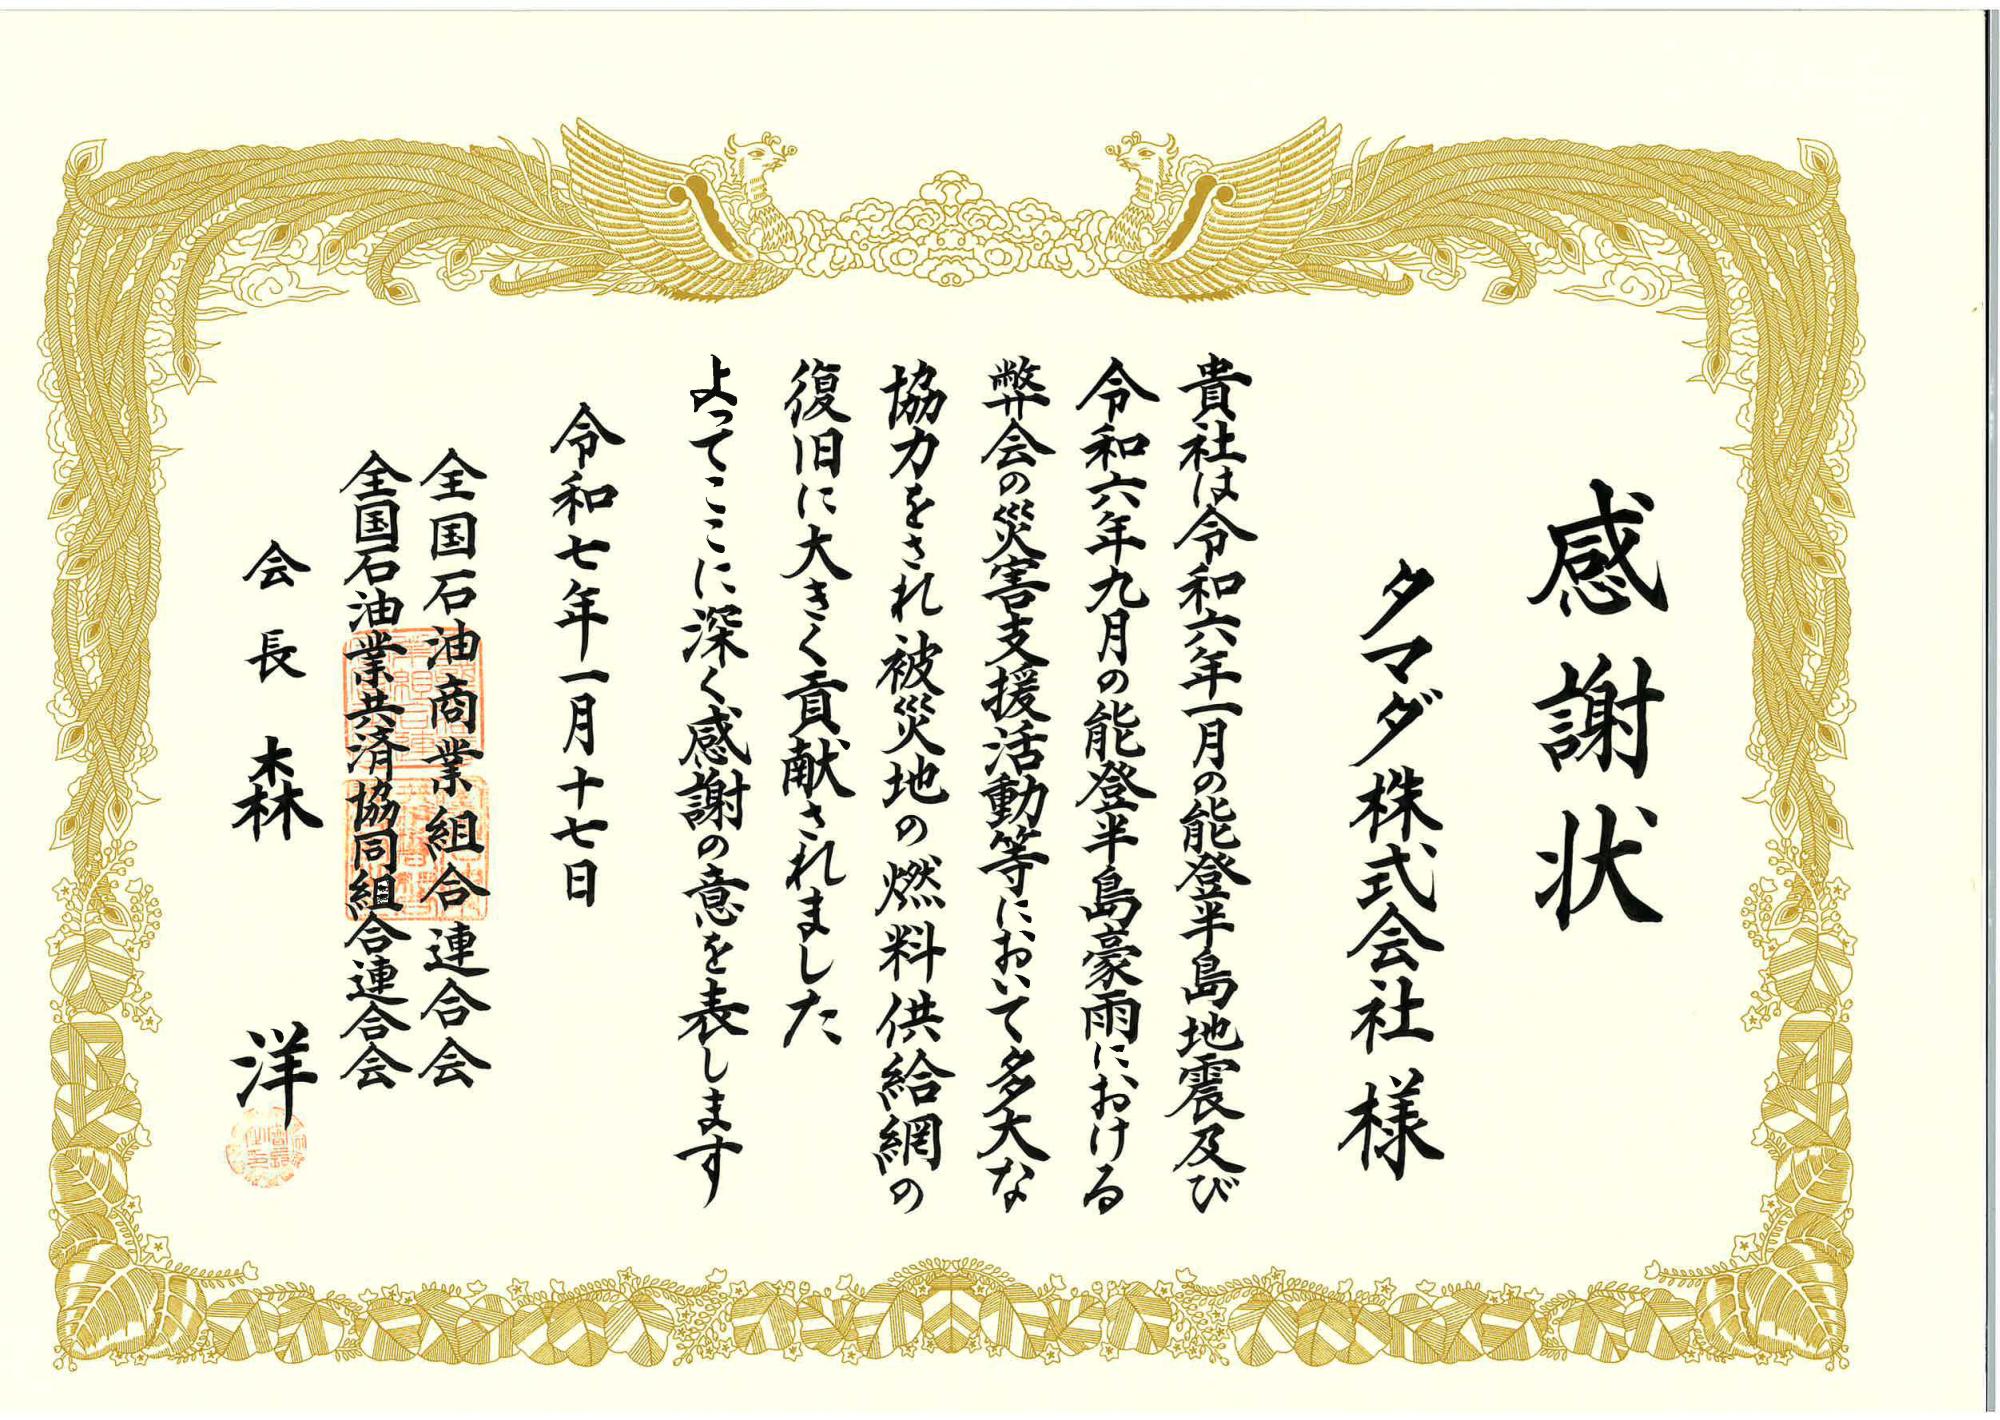 感謝状
タマダ株式会社 様
貴社は令和六年一月の能登半島地震及び
令和六年九月の能登半島豪雨における
弊会の災害支援活動等において多大な
協力をされ被災地の燃料供給網の
復旧に大きく貢献されました
よってここに深く感謝の意を表します
令和七年一月十七日
全国石油商業組合連合会
全国石油業共済協同組合連合会
会長 森 洋